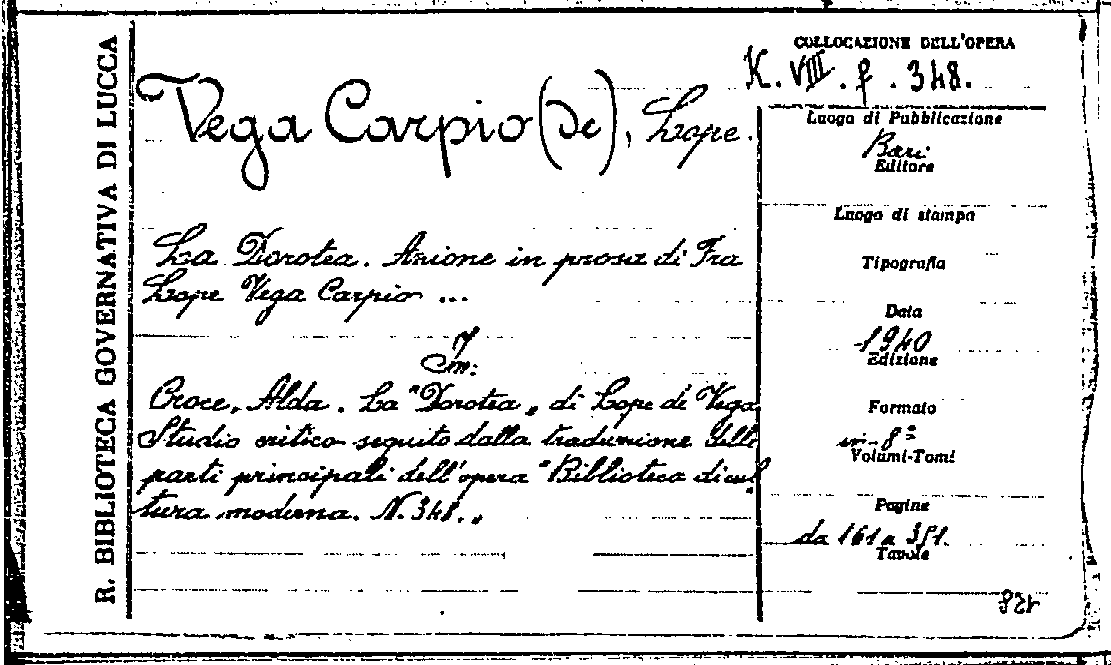 R. BIBLIOTECA GOVERNATIVA DI LUCCA
COLLOCAZIONE DELL'OPERA
K. VIII. f. 348.
Vega Carpio (de), Lope.
La Dorotea. Azione in prosa di Fra
Lope Vega Carpio ...
In:
Croce, Alda. La "Dorotea„ di Lope de Vega
Studio critico seguito dalla traduzione delle
parti principali dell'opera "Biblioteca di cul
tura moderna. N. 348.„
Luogo di Pubblicazione
Bari
Editore
Luogo di stampa
Tipografia
Data
1940
Edizione
Formato
in-8º
Volumi-Tomi
Pagine
da 161 a 351.
Tavole